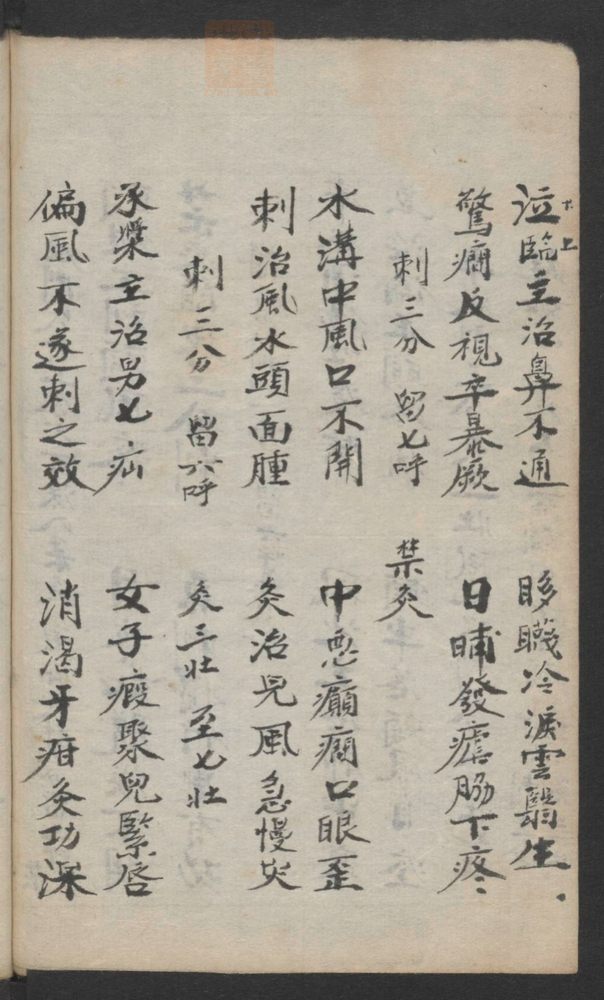 泣臨主治鼻不通 眵䁾冷淚雲翳生
下上
驚癇反視卒暴厥 日晡發瘧脇下疼
刺三分 留七呼 禁灸
水溝中風口不開 中惡癲癇口眼歪
刺治風水頭面腫 灸治兒風急慢灾
刺三分 留六呼 灸三壯 至七壯
承漿主治男七疝 女子瘕聚兒緊唇
偏風不遂刺之效 消渴牙疳灸功深